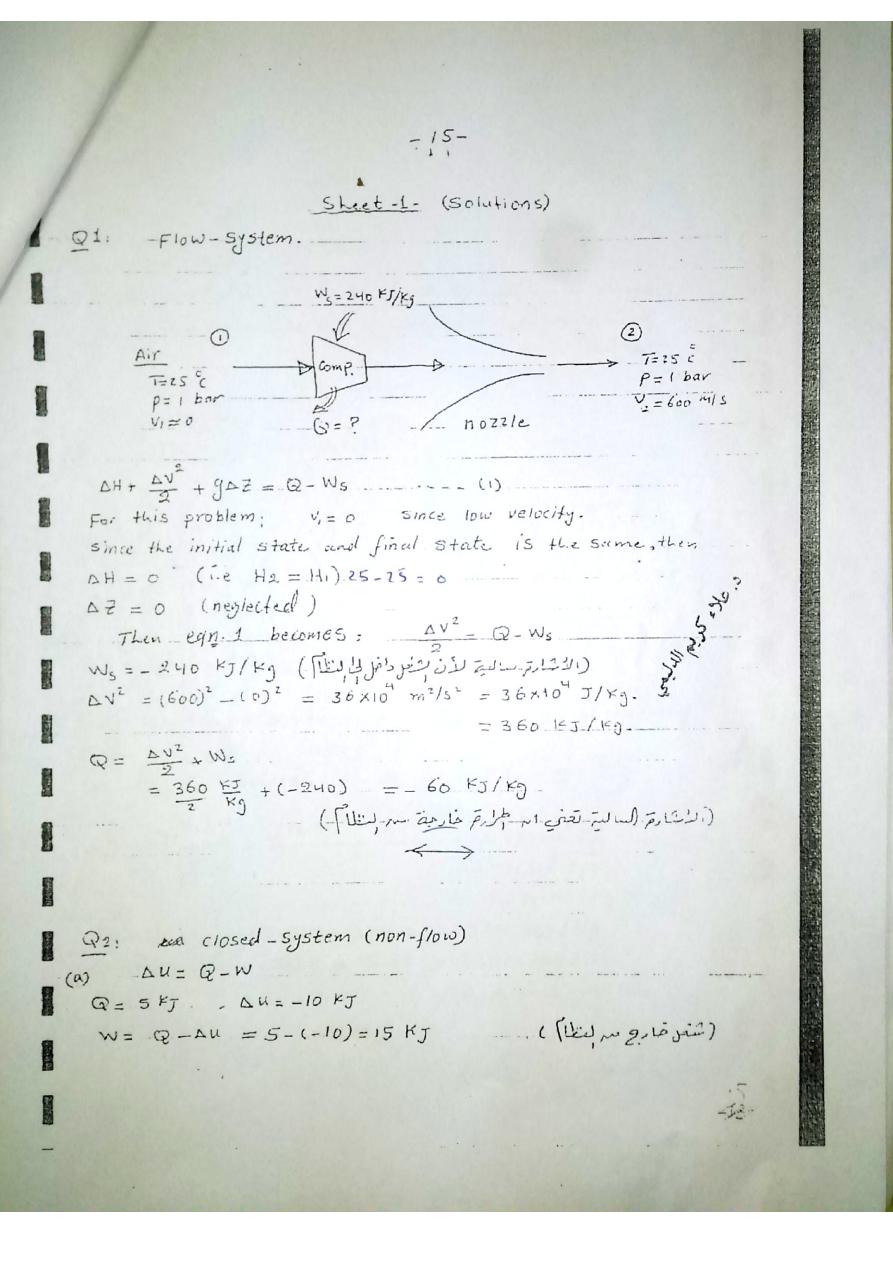 - 15 -
Sheet -1- (Solutions)
Q1: -Flow-System.
Ws = 240 KJ/kg
①
②
Air
T=25 °C
P= 1 bar
V1 ≈ 0
Comp.
Q = ?
nozzle
T=25 °C
P = 1 bar
V2 = 600 m/s
ΔH + ΔV²/2 + gΔZ = Q - Ws ......... (1)
For this problem; V1 = 0 Since low velocity.
Since the initial state and final state is the same, then
ΔH = 0 (i.e H2 = H1) 25-25 = 0
ΔZ = 0 (neglected)
Then eqn. 1 becomes: ΔV²/2 = Q - Ws
Ws = - 240 KJ/kg (الاشارة سالبة لأن الشغل داخل الى النظام)
ΔV² = (600)² - (0)² = 36x10⁴ m²/s² = 36x10⁴ J/kg.
= 360 KJ/kg.
Q = ΔV²/2 + Ws
= 360/2 KJ/Kg + (-240) = - 60 KJ/kg.
(الاشارة السالبة تعني ان الحرارة خارجة من النظام)
د. علاء كريم
Q2: closed-system (non-flow)
(a) ΔU = Q - W
Q = 5 KJ , ΔU = -10 KJ
W = Q - ΔU = 5-(-10) = 15 KJ .... (شغل خارج من النظام)